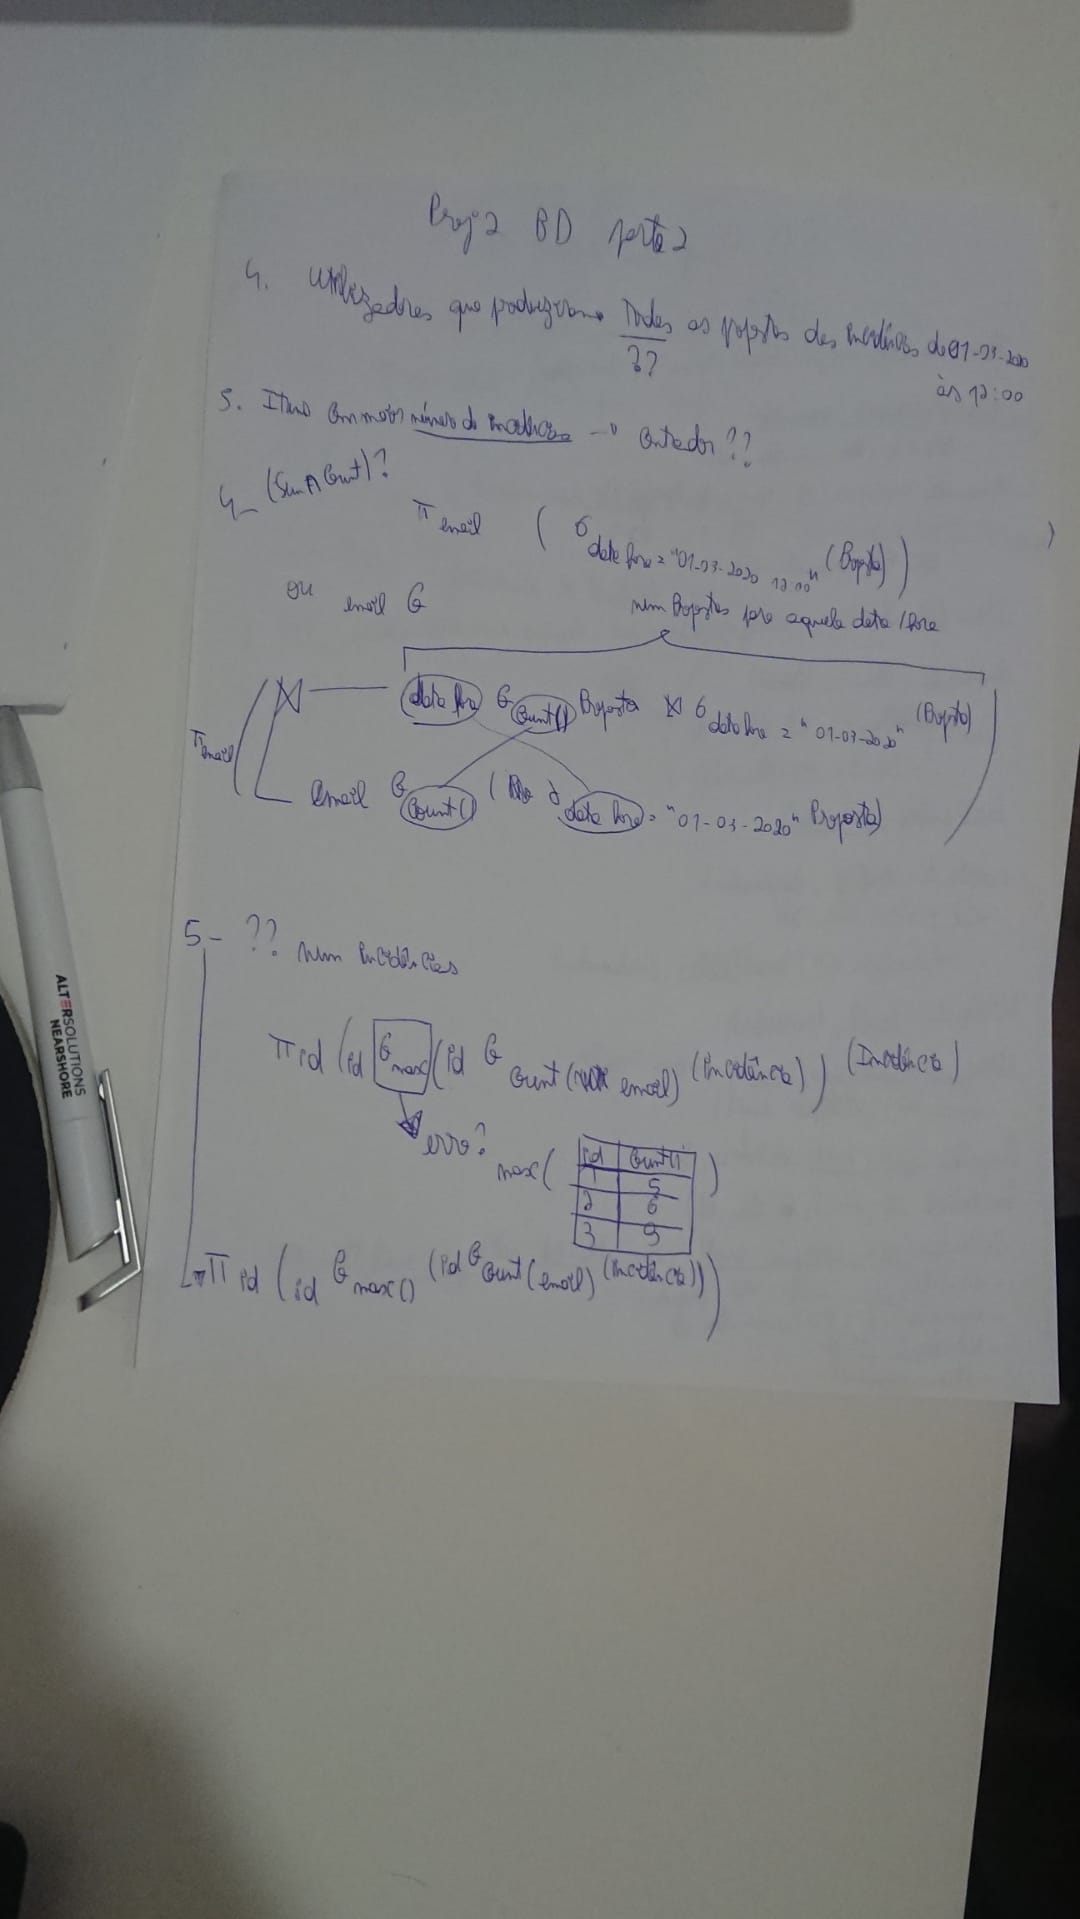 Proj 2 BD parte 2
4. Utilizadores que Todas as propostas das do 01-03-2020
??
às 12:00
5. Itens com mais número de → Contador ??
4_ (Sum ∧ Count)?
π email ( σ data hora = "01-03-2020 12:00" (Proposta) )
ou email G
num Propostas para aquela data/hora
π email ( ⋈ data hora G Count() Proposta ⋈ σ data hora = "01-03-2020" (Proposta)
email G Count() ( σ data hora = "01-03-2020" Proposta)
5- ?? num incidências
π id (id G max (id G Count (email) (incidência))) (Incidência)
erro?
max( id | Count() )
1 | 5
2 | 6
3 | 9
→ π id (id G max() (id G Count (email) (incidência)))
ALTERSOLUTIONS
NEARSHORE